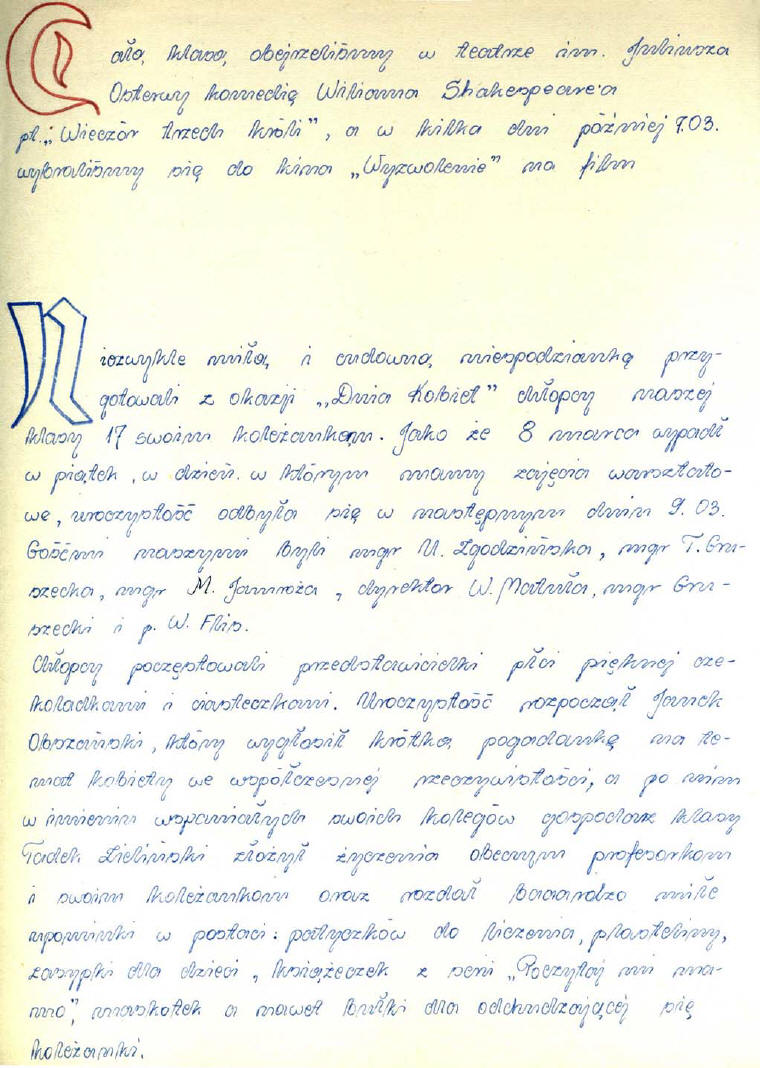 Całą klasą obejrzeliśmy w teatrze im. Juliusza
Osterwy komedię Wiliama Shakespeare'a
pt. „Wieczór trzech króli", a w kilka dni później 9.03.
wybraliśmy się do kina „Wyzwolenie" na film
Niezwykle miłą i cudowną niespodziankę przy-
gotowali z okazji „Dnia Kobiet" chłopcy naszej
klasy 17 swoim koleżankom. Jako że 8 marca wypadł
w piątek, w dzień w którym mamy zajęcia warsztato-
we, uroczystość odbyła się w następnym dniu 9.03.
Gośćmi naszymi byli mgr U. Zgodzińska, mgr T. Gru-
szecka, mgr M. Jamroża, dyrektor W. Matuła, mgr Gru-
szecki i p. W. Flis.
Chłopcy poczęstowali przedstawicielki płci pięknej cze-
koladkami i ciasteczkami. Uroczystość rozpoczął Janek
Obszański, który wygłosił krótką pogadankę na te-
mat kobiety we współczesnej rzeczywistości, a po nim
w imieniu wspaniałych swoich kolegów gospodarz klasy
Tadek Zieliński złożył życzenia obecnym profesorkom
i swoim koleżankom oraz rozdał baaardzo miłe
upominki w postaci: patyczków do liczenia, plasteliny,
zasypki dla dzieci, książeczek z serii „Poczytaj mi ma-
mo", maskotek a nawet bułki dla odchudzającej się
koleżanki.